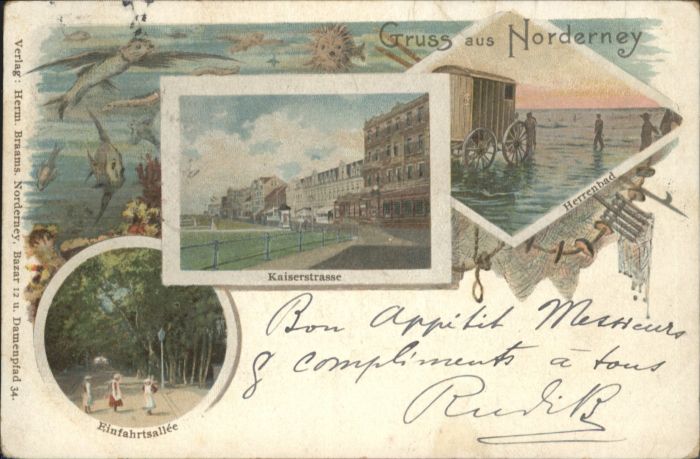 Gruss aus Norderney
Verlag: Herm. Braams, Norderney, Bazar 12 u. Damenpfad 34.
Herrenbad
Kaiserstrasse
Einfahrtsallée
Bon Appétit Messieurs
& compliments à tous
Rudi B